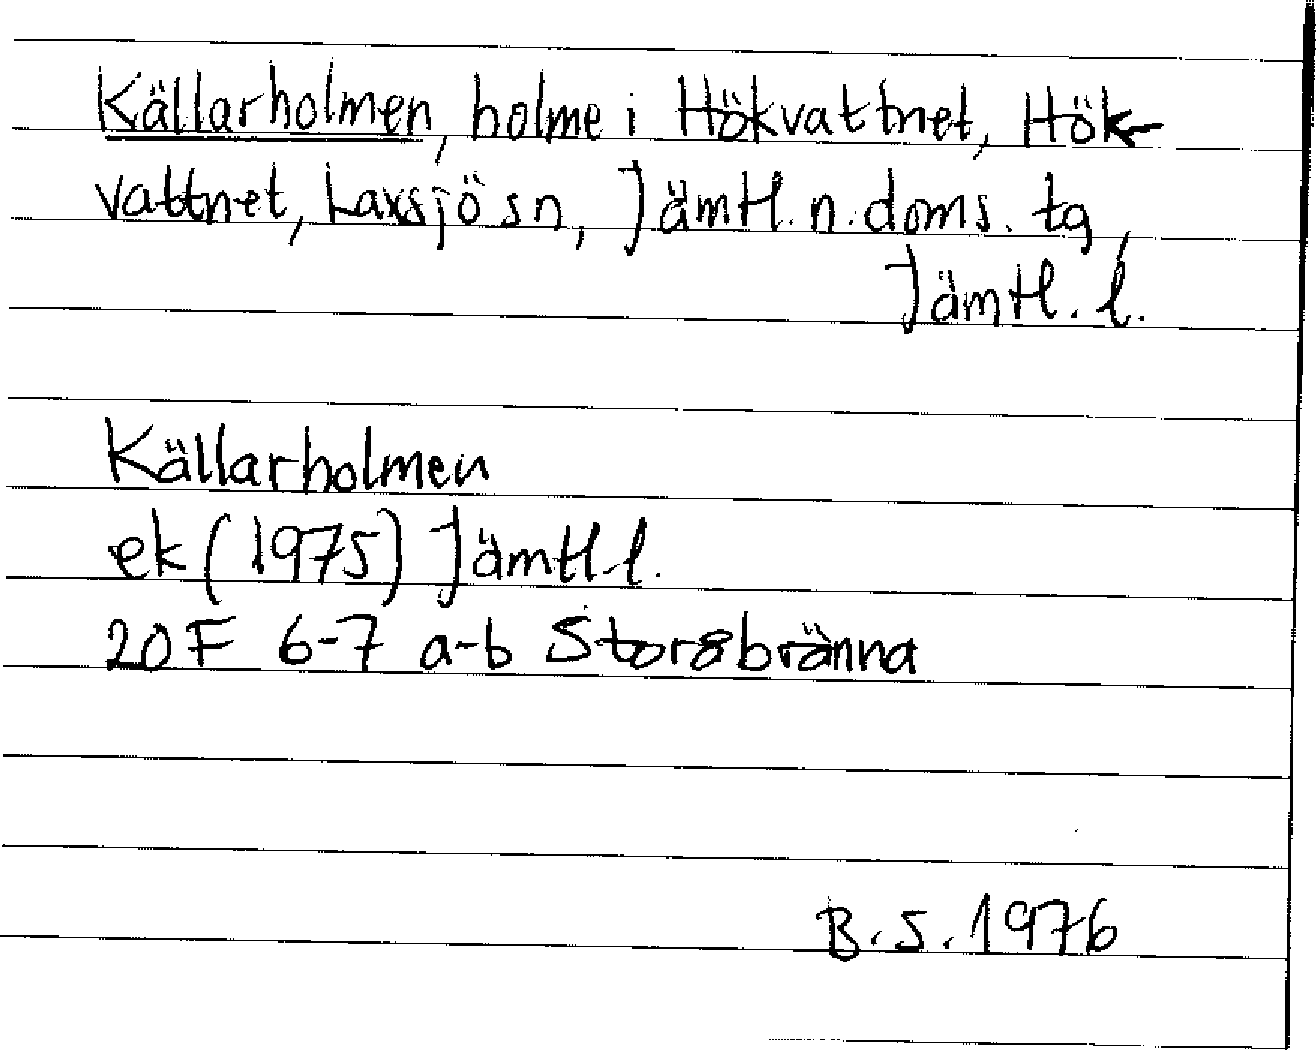 Källarholmen, holme i Hökvattnet, Hök-
vattnet, Laxsjö sn, Jämtl. n. doms. tg
Jämtl. l.
Källarholmen
ek (1975) Jämtl. l.
20 F 6-7 a-b Storsbränna
B.S. 1976